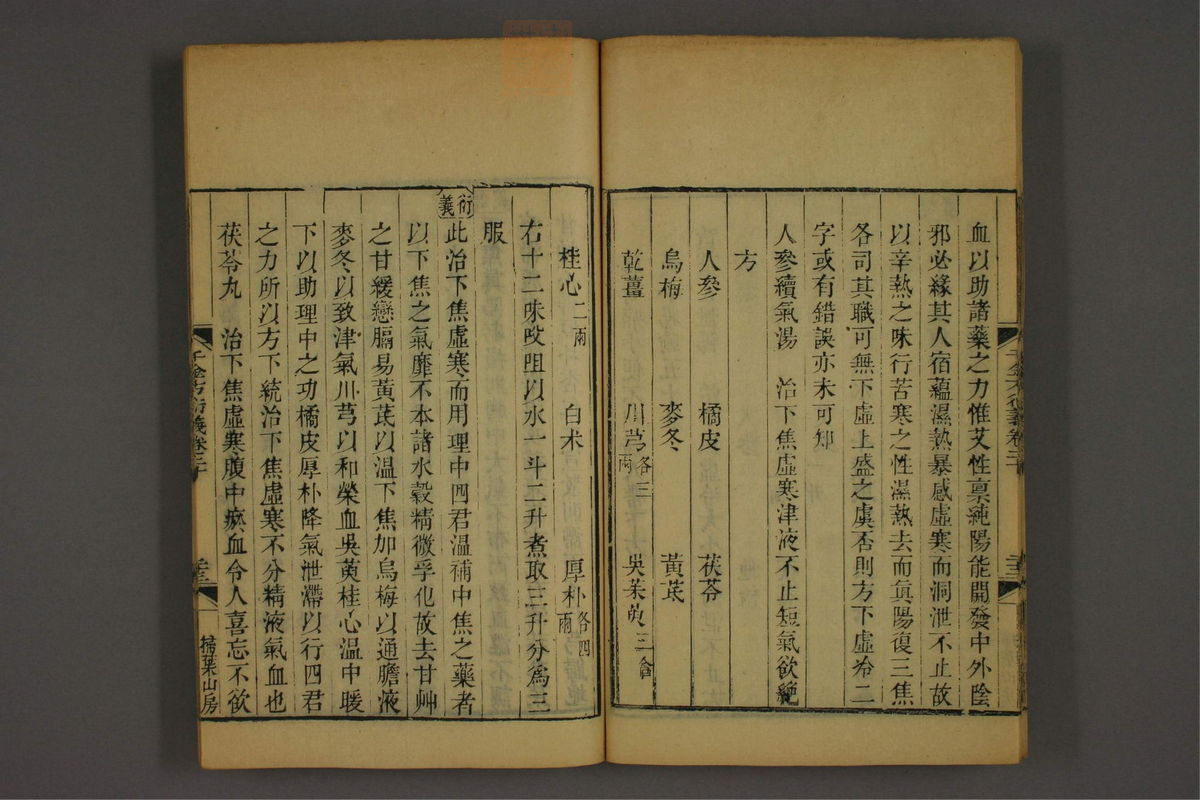 血以助諸藥之力惟艾性稟純陽能開發中外陰
邪必緣其人宿蘊濕熱暴感虛寒而洞泄不止故
以辛熱之味行苦寒之性濕熱去而眞陽復三焦
各司其職可無下虛上盛之虞否則方下虛㣲二
字或有錯誤亦未可知
人參續氣湯　治下焦虛寒津液不止短氣欲絕
方
人參　橘皮　茯苓
烏梅　麥冬　黃芪
乾薑　川芎各三兩　吳茱萸三合
桂心二兩　白术　厚朴各四兩
右十二味㕮咀以水一斗二升煮取三升分爲三
服
衍義
此治下焦虛寒而用理中四君溫補中焦之藥者
以下焦之氣靡不本諸水穀精微孚化故去甘艸
之甘緩戀膈易黃芪以溫下焦加烏梅以通膽液
麥冬以致津氣川芎以和榮血吳萸桂心溫中暖
下以助理中之功橘皮厚朴降氣泄滯以行四君
之力所以方下統治下焦虛寒不分精液氣血也
茯苓丸　治下焦虛寒腹中瘀血令人喜忘不欲
千金方衍義卷二十
掃葉山房